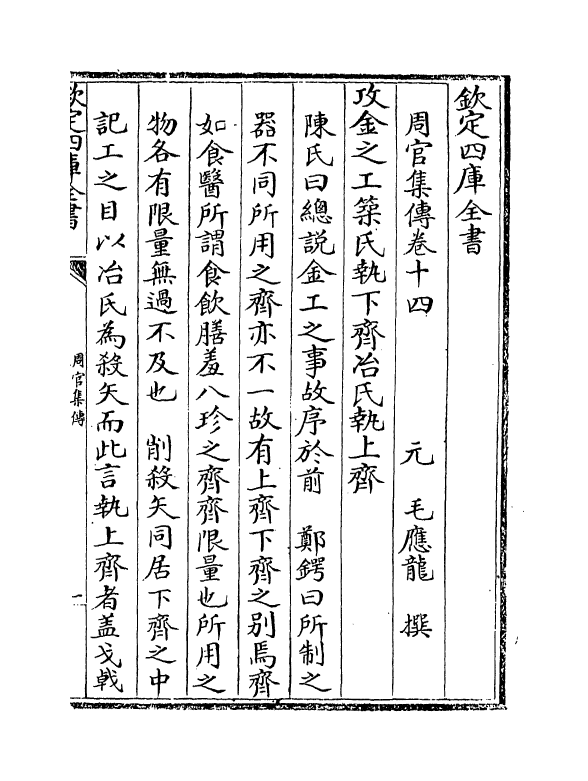 欽定四庫全書
周官集傳卷十四
元 毛應龍 撰
攻金之工築氏執下齊冶氏執上齊
陳氏曰總説金工之事故序於前 鄭鍔曰所制之
器不同所用之齊亦不一故有上齊下齊之别焉齊
如食醫所謂食飲膳羞八珍之齊齊限量也所用之
物各有限量無過不及也 削殺矢同居下齊之中
記工之目以冶氏為殺矢而此言執上齊者盖戈戟
欽定四庫全書
周官集傳
一